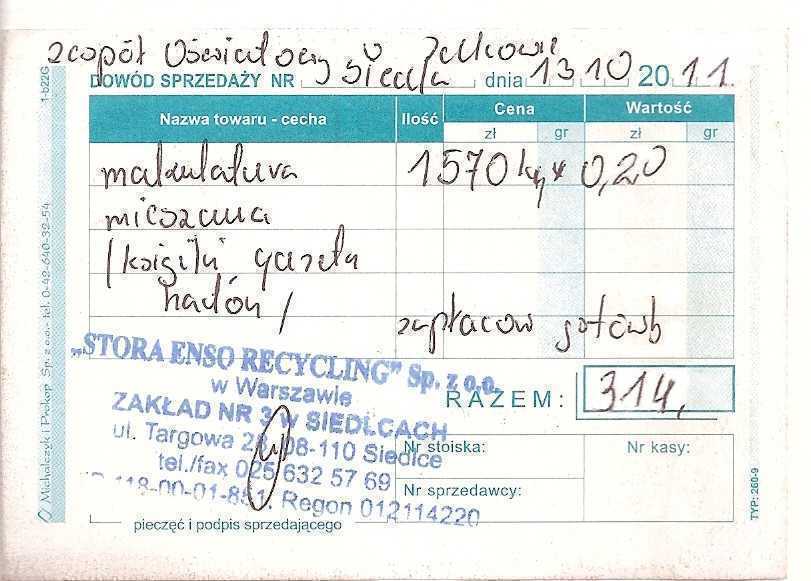 zespół Oświatowy w
Siedlce
DOWÓD SPRZEDAŻY NR dnia 13 10 20 11.
Nazwa towaru - cecha Ilość Cena Wartość
zł gr zł gr
makulatura 1570 kg x 0,20
mieszana
(książki gazeta
nadów)
zapłacow gotówk
„STORA ENSO RECYCLING" Sp. z o.o.
w Warszawie
ZAKŁAD NR 3 w SIEDLCACH
ul. Targowa 08-110 Siedlce
tel./fax 025 632 57 69
118-00-01-851, Regon 012114220
RAZEM: 314,
Nr stoiska: Nr kasy:
Nr sprzedawcy:
pieczęć i podpis sprzedającego
1-b22G
Michalczyk i Prokop Sp. z o.o. tel. 0-42-640-32-54
TYP: 260-9